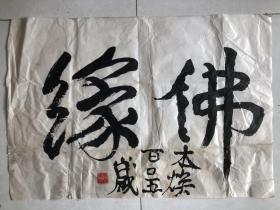 佛缘
本焕
百〇五
岁